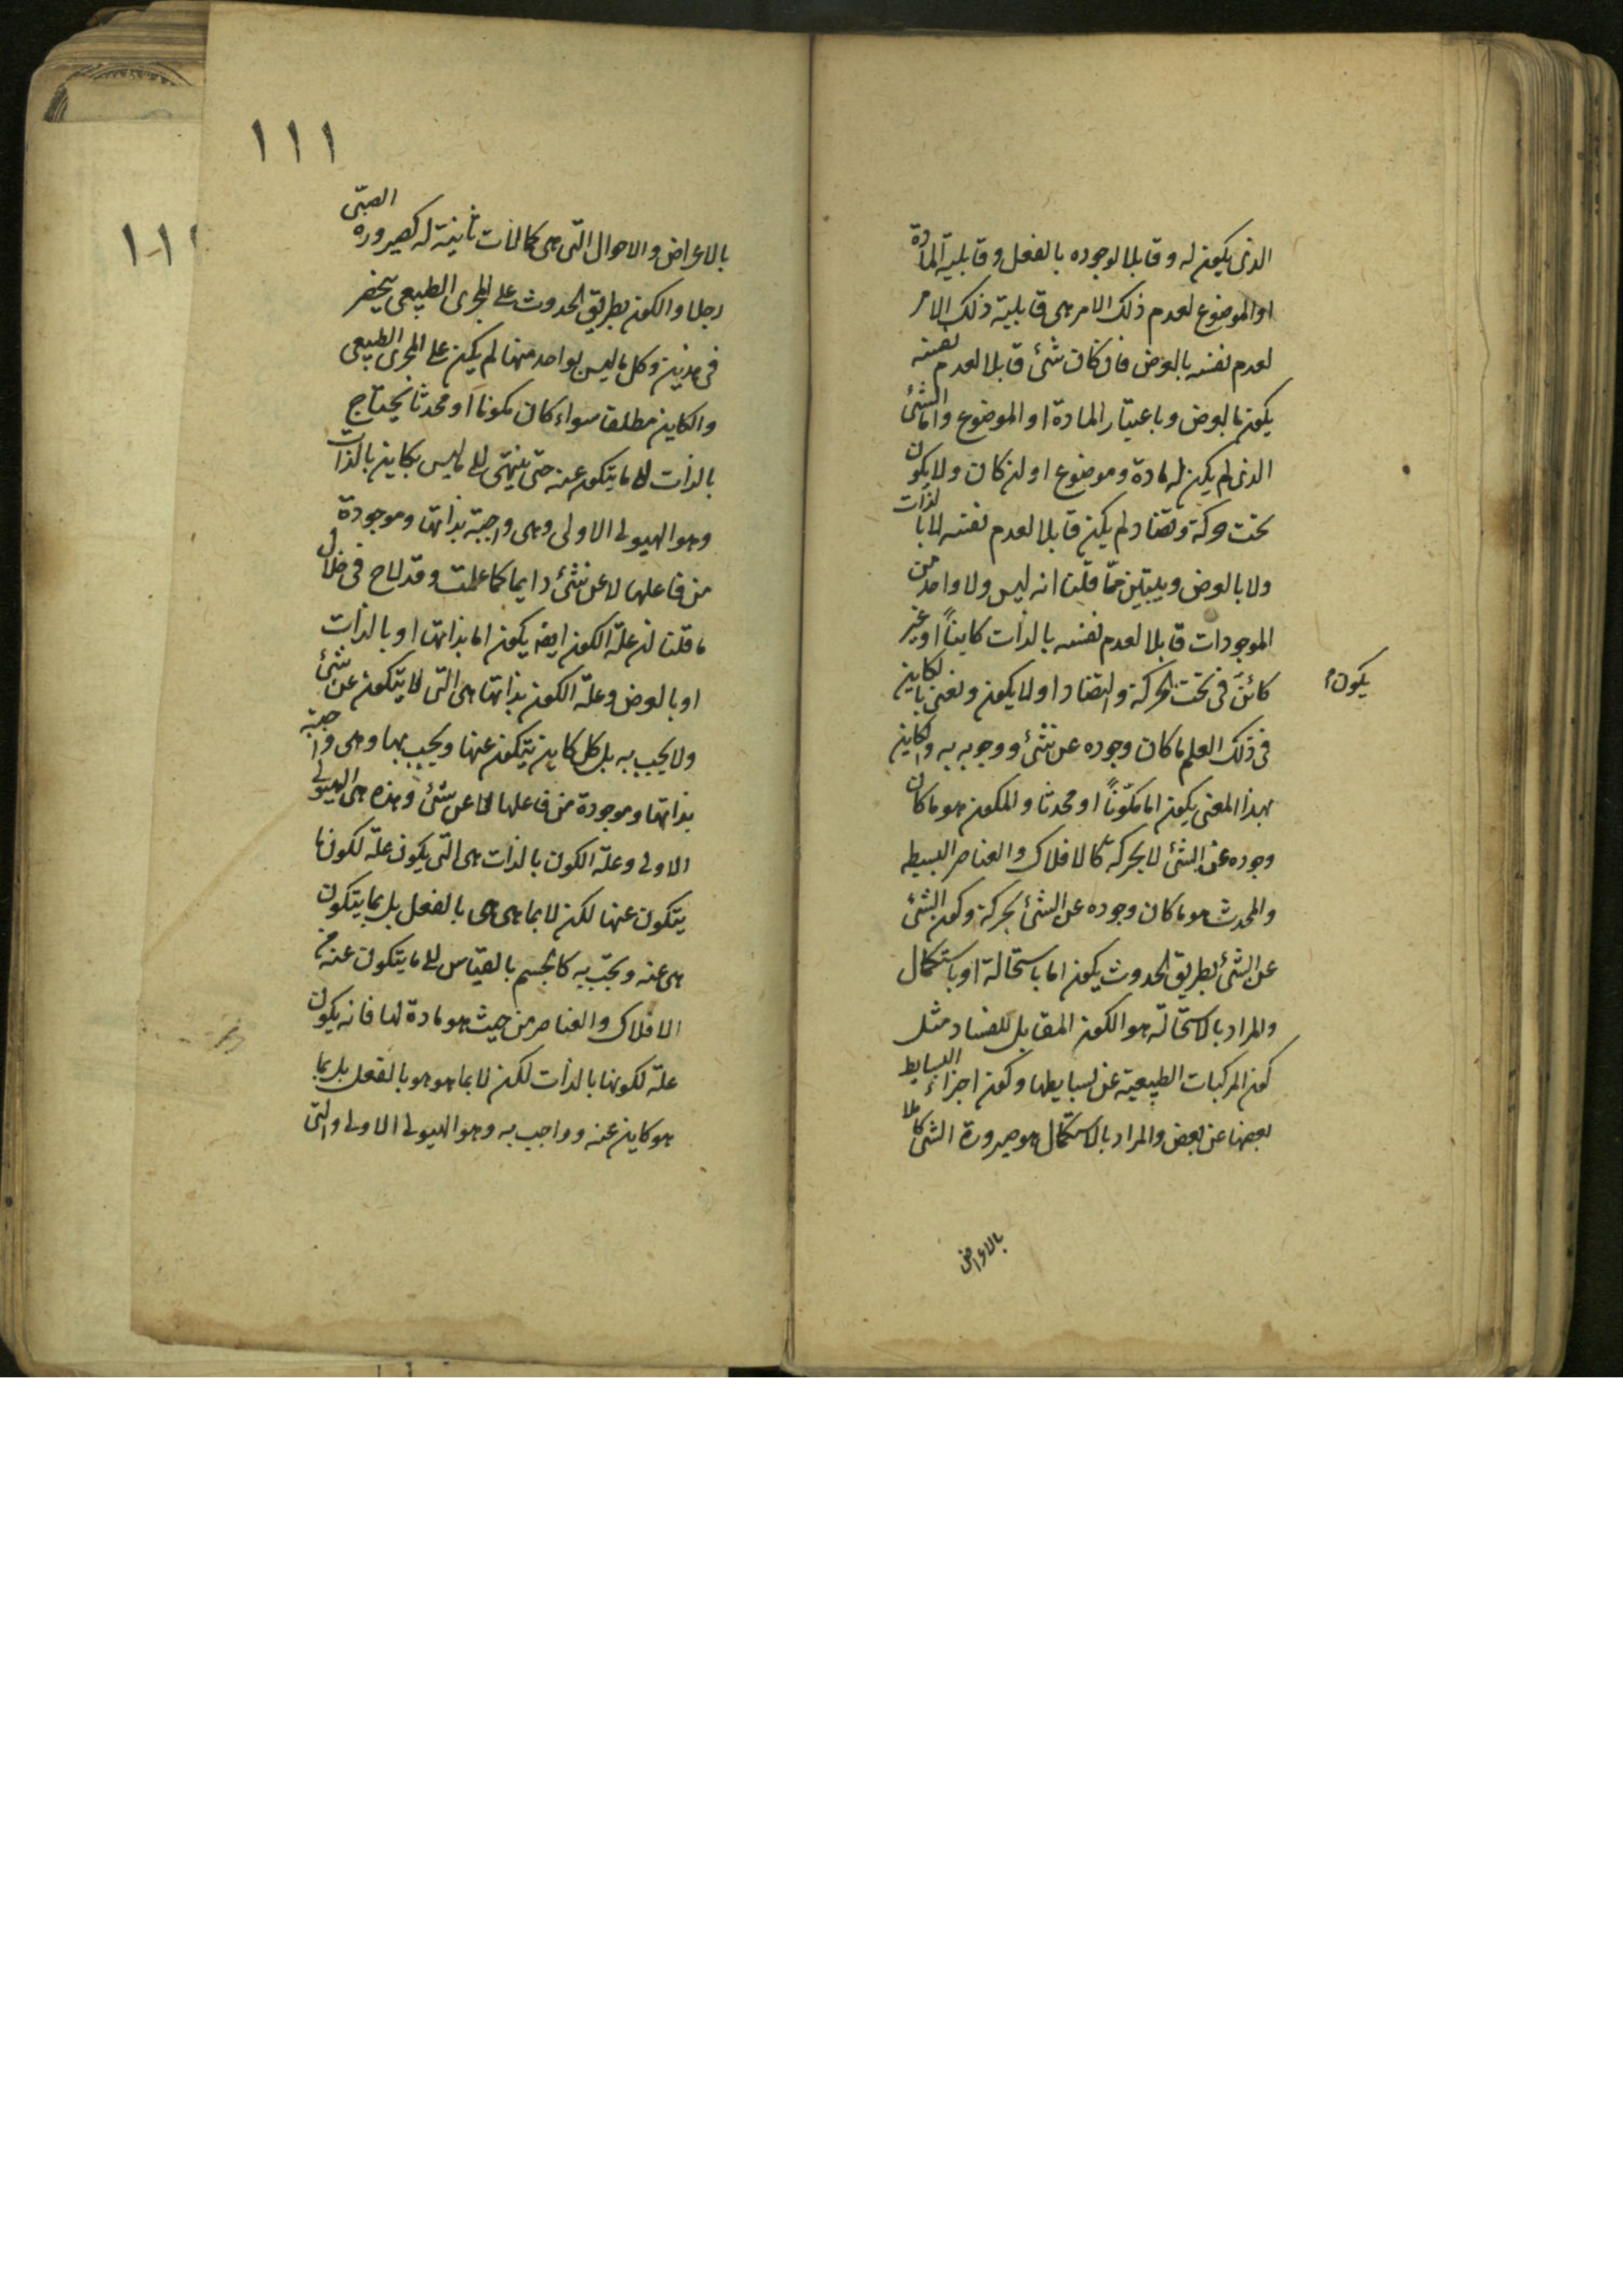 الذى يكون له وقابلا لوجوده بالفعل وقابلية المادة
او الموضوع لعدم ذلك الامر هى قابلية ذلك الامر
لعدم نفسه بالعرض فان كان شئ قابلا لعدم نفسه
يكون بالعرض وباعتبار المادة او الموضوع واما الشئ
الذى لم يكن له مادة وموضوع او لن كان ولا يكون
تحت حركة وتضاد لم يكن قابلا لعدم نفسه لا بالذات
ولا بالعرض ويتبين مما قلنا انه ليس ولا واحد من
الموجودات قابلا لعدم نفسه بالذات كايناً او غير
كائن فى تحت الحركة والتضاد او لا يكون ونعنى بالكاين
يكون
فى ذلك العلم ما كان وجوده عن شئ ووجوبه به والكاين
بهذا المعنى يكون اما مكوّناً او محدثا والمكون هو ما كان
وجوده عن الشئ لا بحركة كالافلاك والعناصر البسيطه
والمحدث هو ما كان وجوده عن الشئ بحركة وكون الشئ
عن الشئ بطريق الحدوث يكون اما باستحالة او باستكمال
والمراد بالاستحالة هو الكون المقابل للفساد مثل
كون المركبات الطبيعية عن بسايطها وكون اجزاء البسايط
بعضها عن بعض والمراد بالاستكمال هو صيرورة الشئ كاملا
بالاعراض
١١١
بالاعراض والاحوال التى هى كمالات ثانية له كصيروره الصبّى
رجلا والكون بطريق الحدوث على المجرى الطبيعى ينحصر
فى هذين وكل ما ليس بواحد منهما لم يكن على المجرى الطبيعى
والكاين مطلقا سواء كان مكونا او محدثا يحتاج
بالذات الا ما يتكون عنه حتى ينتهى الى ما ليس بكاين بالذات
وهو الهيولى الاولى وهى واجبة بذاتها وموجودة
من فاعلها لا عن شئ دايما كما علمت وقد لاح فى خلال
ما قلنا لن علة الكون ايضا يكون اما بذاتها او بالذات
او بالعرض وعلة الكون بذاتها هى التى لا يتكون عن شئ
ولا يجب به بل كل كاين يتكون عنها ويجب بها وهى واجبة
بذاتها وموجودة من فاعلها لا عن شئ وهذه هى الهيولى
الاولى وعلة الكون بالذات هى التى يكون علة لكون ما
يتكون عنها لكن لا بما هى هى بالفعل بل بما يتكون
هى عنه ويجب به كالجسم بالقياس الى ما يتكون عنه من
الافلاك والعناصر من حيث هو مادة لها فانه يكون
علة لكونها بالذات لكن لا بما هو هو بالفعل بل بما
هو كاين عنه وواجب به وهو الهيولى الاولى والتى
١١١